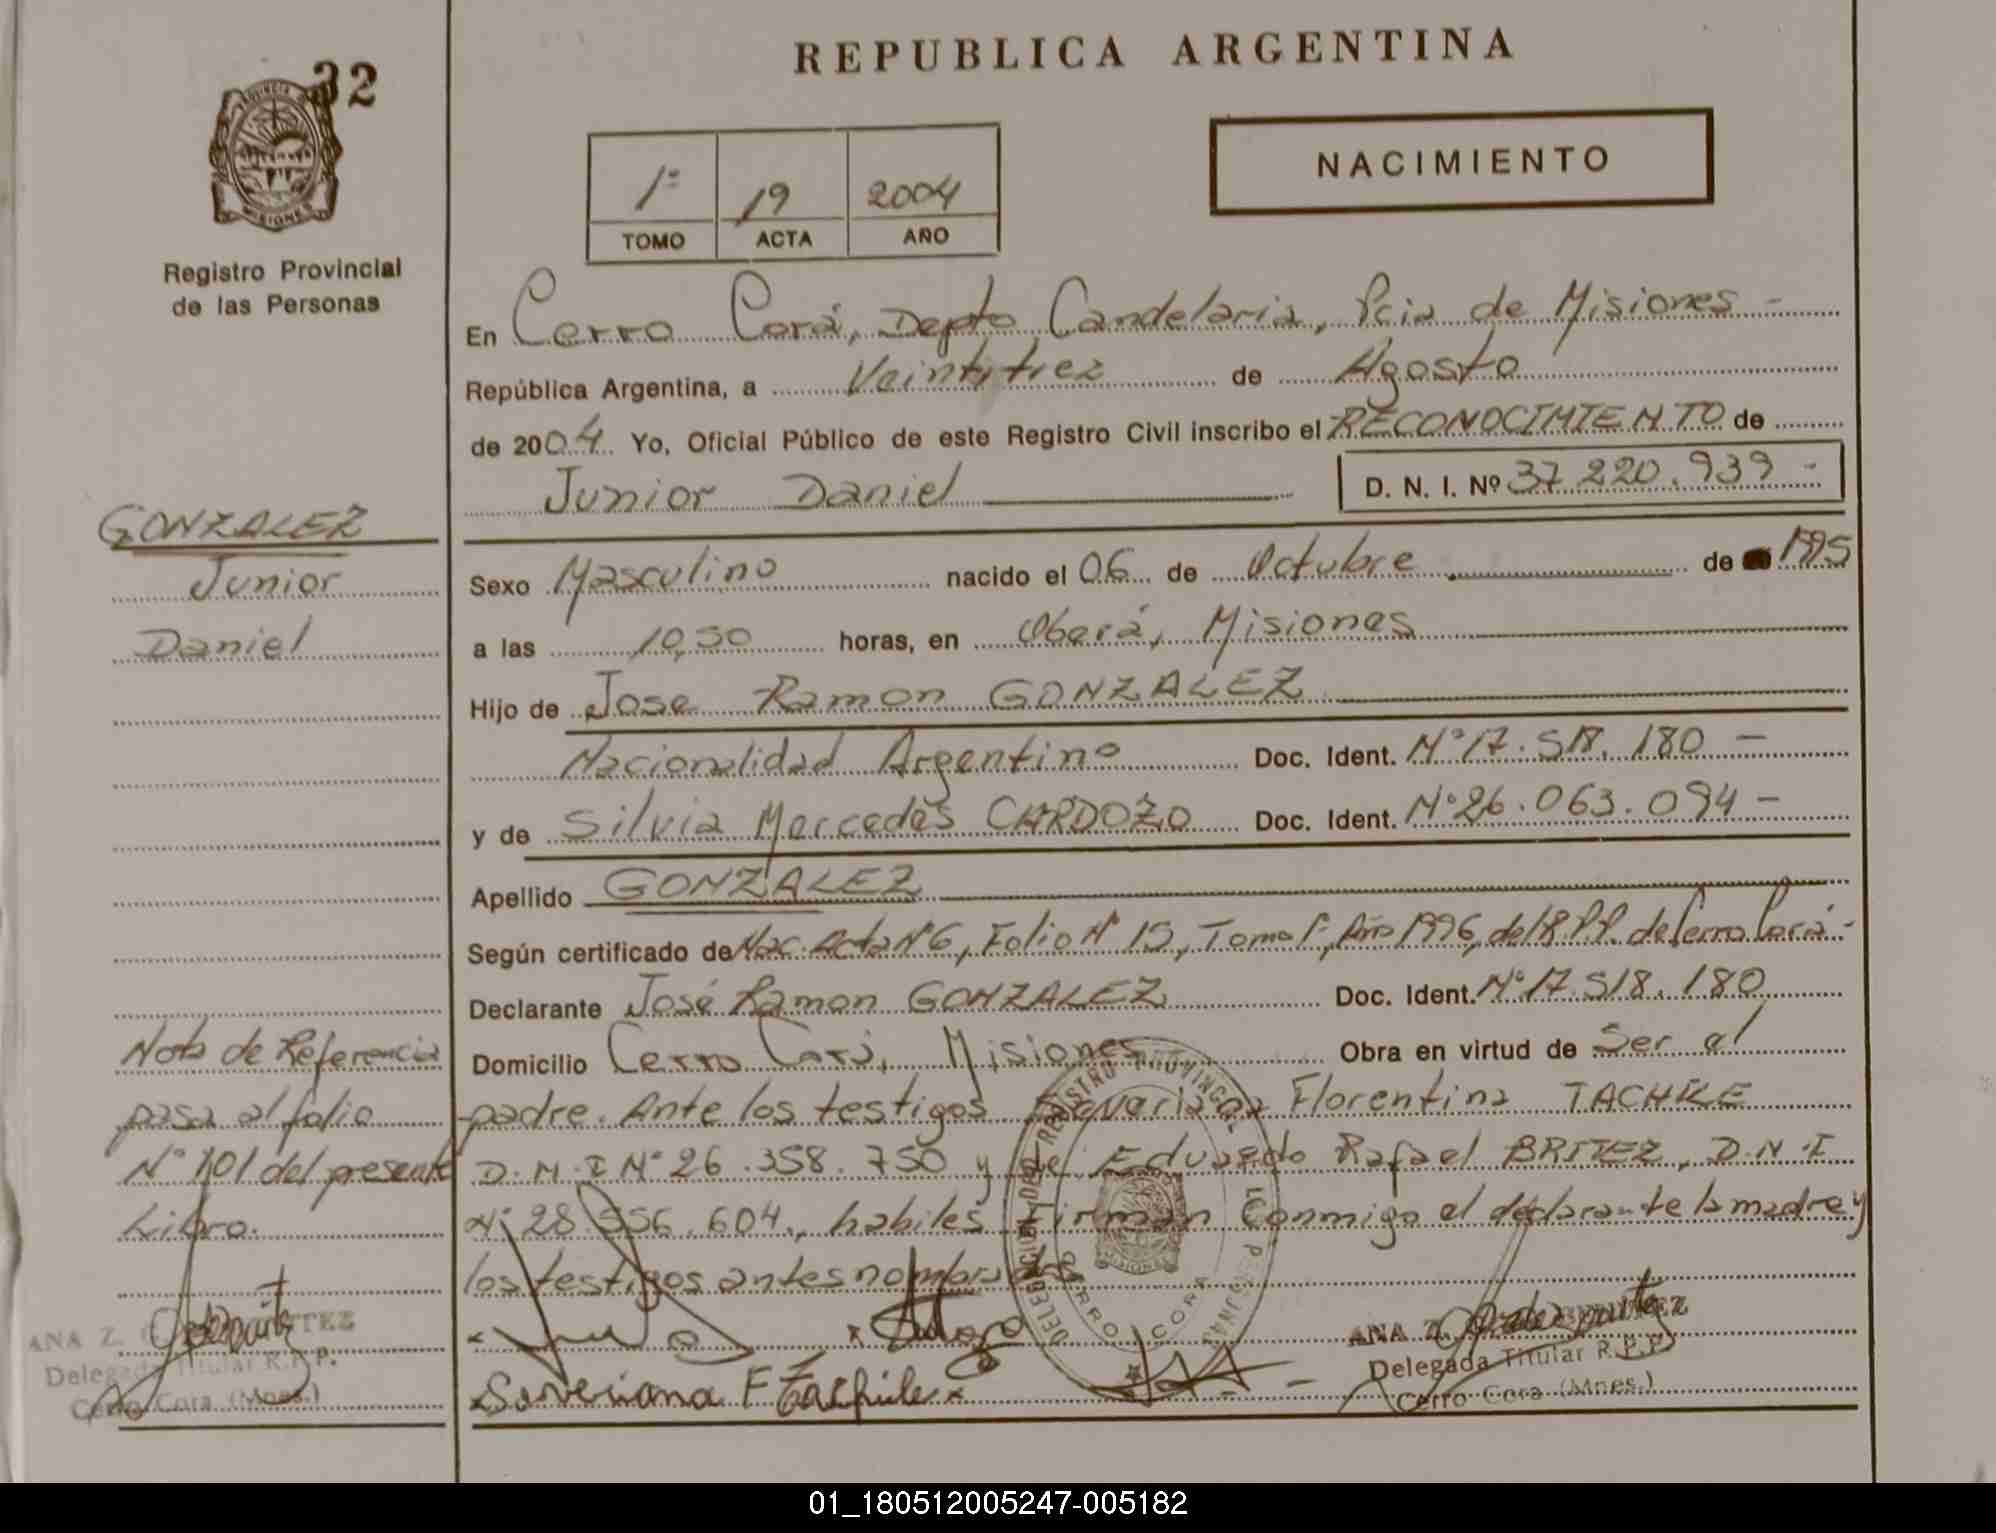 32
REPUBLICA ARGENTINA
NACIMIENTO
1º 19 2004
TOMO ACTA AÑO
PROVINCIA
MISIONES
Registro Provincial
de las Personas
En Cerro Corá, Depto Candelaria, Pcia de Misiones -
República Argentina, a Veintitrez de Agosto
de 2004 Yo, Oficial Público de este Registro Civil inscribo el RECONOCIMIENTO de
Junior Daniel D. N. I. Nº 37 220.939 -
GONZALEZ
Junior
Daniel
Sexo Masculino nacido el 06 de Octubre de 1995
a las 10,50 horas, en Oberá, Misiones
Hijo de Jose Ramon GONZALEZ
Nacionalidad Argentino Doc. Ident. Nº 17.518.180 -
y de Silvia Mercedes CARDOZO Doc. Ident. Nº 26.063.094 -
Apellido GONZALEZ
Según certificado de Nac. Acta Nº 6, Folio Nº 15, Tomo 1º, Año 1996, del R.P.P. de Cerro Corá.-
Declarante José Ramon GONZALEZ Doc. Ident. Nº 17.518.180
Domicilio Cerro Corá, Misiones Obra en virtud de Ser el
padre. Ante los testigos Florentina TACHILE
D.N.I Nº 26.358.750 y de Eduardo Rafael BRITEZ, D.N.I
Nº 28.556.604., habiles Firman Conmigo el declarante la madre y
los testigos antes nombrados
Nota de Referencia
pasa al folio
Nº 101 del presente
Libro.
ANA Z.
Delegada Titular R.P.P.
Cerro Cora (Mnes.)
DELEGACION DEL REGISTRO PROVINCIAL DE LAS PERSONAS
CERRO CORA
MISIONES
Severiana F Tachile
ANA Z.
Delegada Titular R.P.P.
Cerro Cora (Mnes.)
01_180512005247-005182